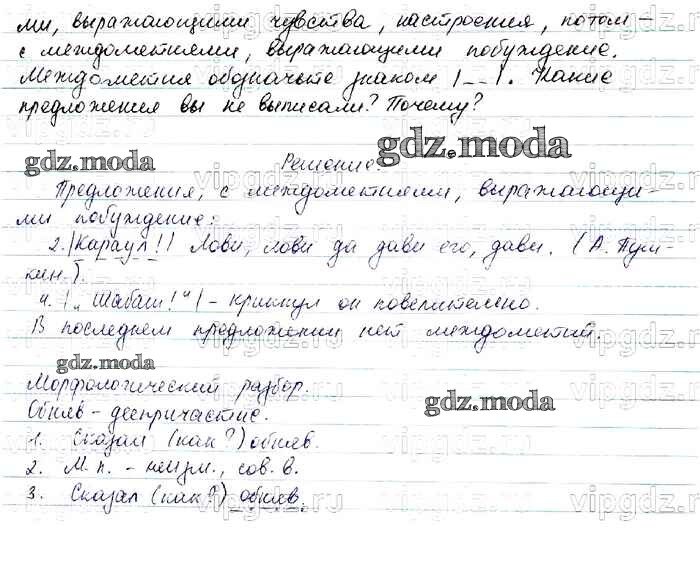 ми, выражающими чувства, настроения, потом –
с междометиями, выражающими побуждение.
Междометия обозначьте знаком |_ _|. Какие
предложения вы не выписали? Почему?
gdz.moda
gdz.moda
Решение.
Предложения, с междометиями, выражающи-
ми побуждение:
2. |Караул!| Лови, лови да дави его, дави. (А. Пуш-
кин.).
4. |„Шабаш!“| – крикнул он повелительно.
В последнем предложении нет междометий.
gdz.moda
Морфологический разбор.
gdz.moda
Обняв – деепричастие.
1. Сказал (как?) обняв.
2. М.п. – неизм., сов. в.
3. Сказал (как?) обняв.
vipgdz.ru